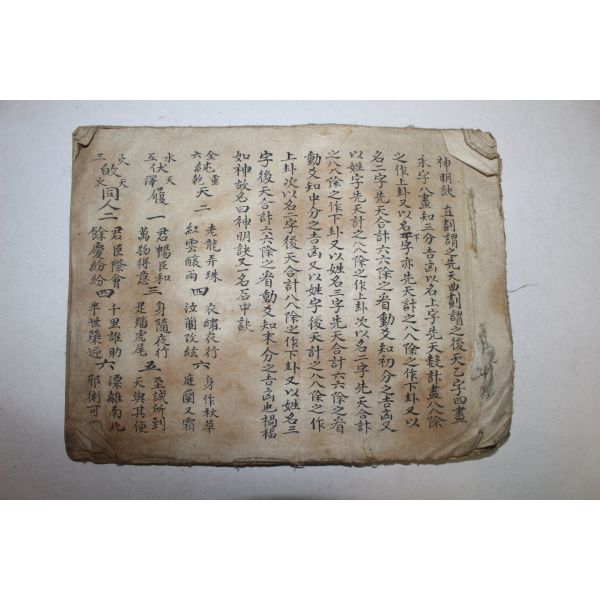 神明訣 直劃謂之先天曲劃謂之後天乙字四畫
永字八畫知三分吉凶以名上字先天數計盡八八除
之作上卦又以名下字亦先天計之八八除之作下卦又以
名二字先天合計六六除之看動爻知初分之吉凶又
以姓字先天計之八八除之作上卦次以名二字先天合計
之八八除之作下卦又以姓名三字先天合計六六除之看
動爻知中分之吉凶又以姓字後天計之八八除之作
上卦次以名二字後天合計八八除之作下卦又以姓名三
字後天合計六六除之看動爻知末分之吉凶也禍福
如神故名曰神明訣又一名
天 二 老龍弄珠 紅雲釀雨 四 衣繡夜行 汝蘭改絃 六 身作秋草 庭蘭又霜
天澤履 一 君暢臣和 萬物得意 三 身隨夜行 是踏虎尾 五 至誠所到 天與其便
天火同人 二 君臣際會 餘慶紛紛 四 千里誰助 半世榮 六 漂離南北 邪術可